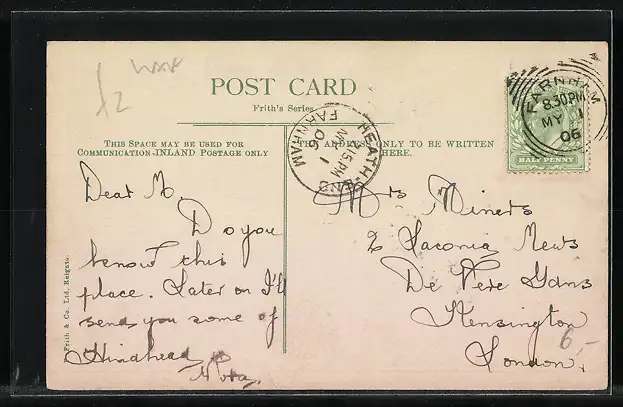 £2
POST CARD
Frith's Series
THIS SPACE MAY BE USED FOR
COMMUNICATION-INLAND POSTAGE ONLY
THE ADDRESS ONLY TO BE WRITTEN
HERE.
HEATH-END
7.15 PM
MY 1
06
FARNHAM
FARNHAM
8.30 PM
MY 1
06
HALF PENNY
Dear M.
Do you
know this
place. Later on I'll
send you some of
Hindhead
Nora.
Mrs Miners
Laconia Mews
De Vere Gdns
Kensington
London.
6,-
F. Frith & Co. Ltd. Reigate.